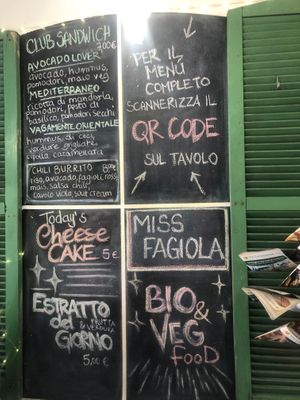 CLUB SANDWICH
7,00€
AVOCADO LOVER
avocado, hummus,
pomodori, maio veg
MEDITERRANEO
ricotta di mandorla,
pomodori, pesto di
basilico, pomodori secchi
VAGAMENTE ORIENTALE
hummus di ceci,
verdure grigliate,
cipolla caramellata
CHILI BURRITO
riso, avocado, fagioli rossi,
mais, salsa chili,
cavolo viola, sour cream
PER IL
MENÙ
COMPLETO
SCANNERIZZA IL
QR CODE
SUL TAVOLO
Today's
Cheese
CAKE 5€
ESTRATTO
del FRUTTA
& VERDURA
GIORNO
5,00€
MISS
FAGIOLA
BIO &
VEG
FOOD